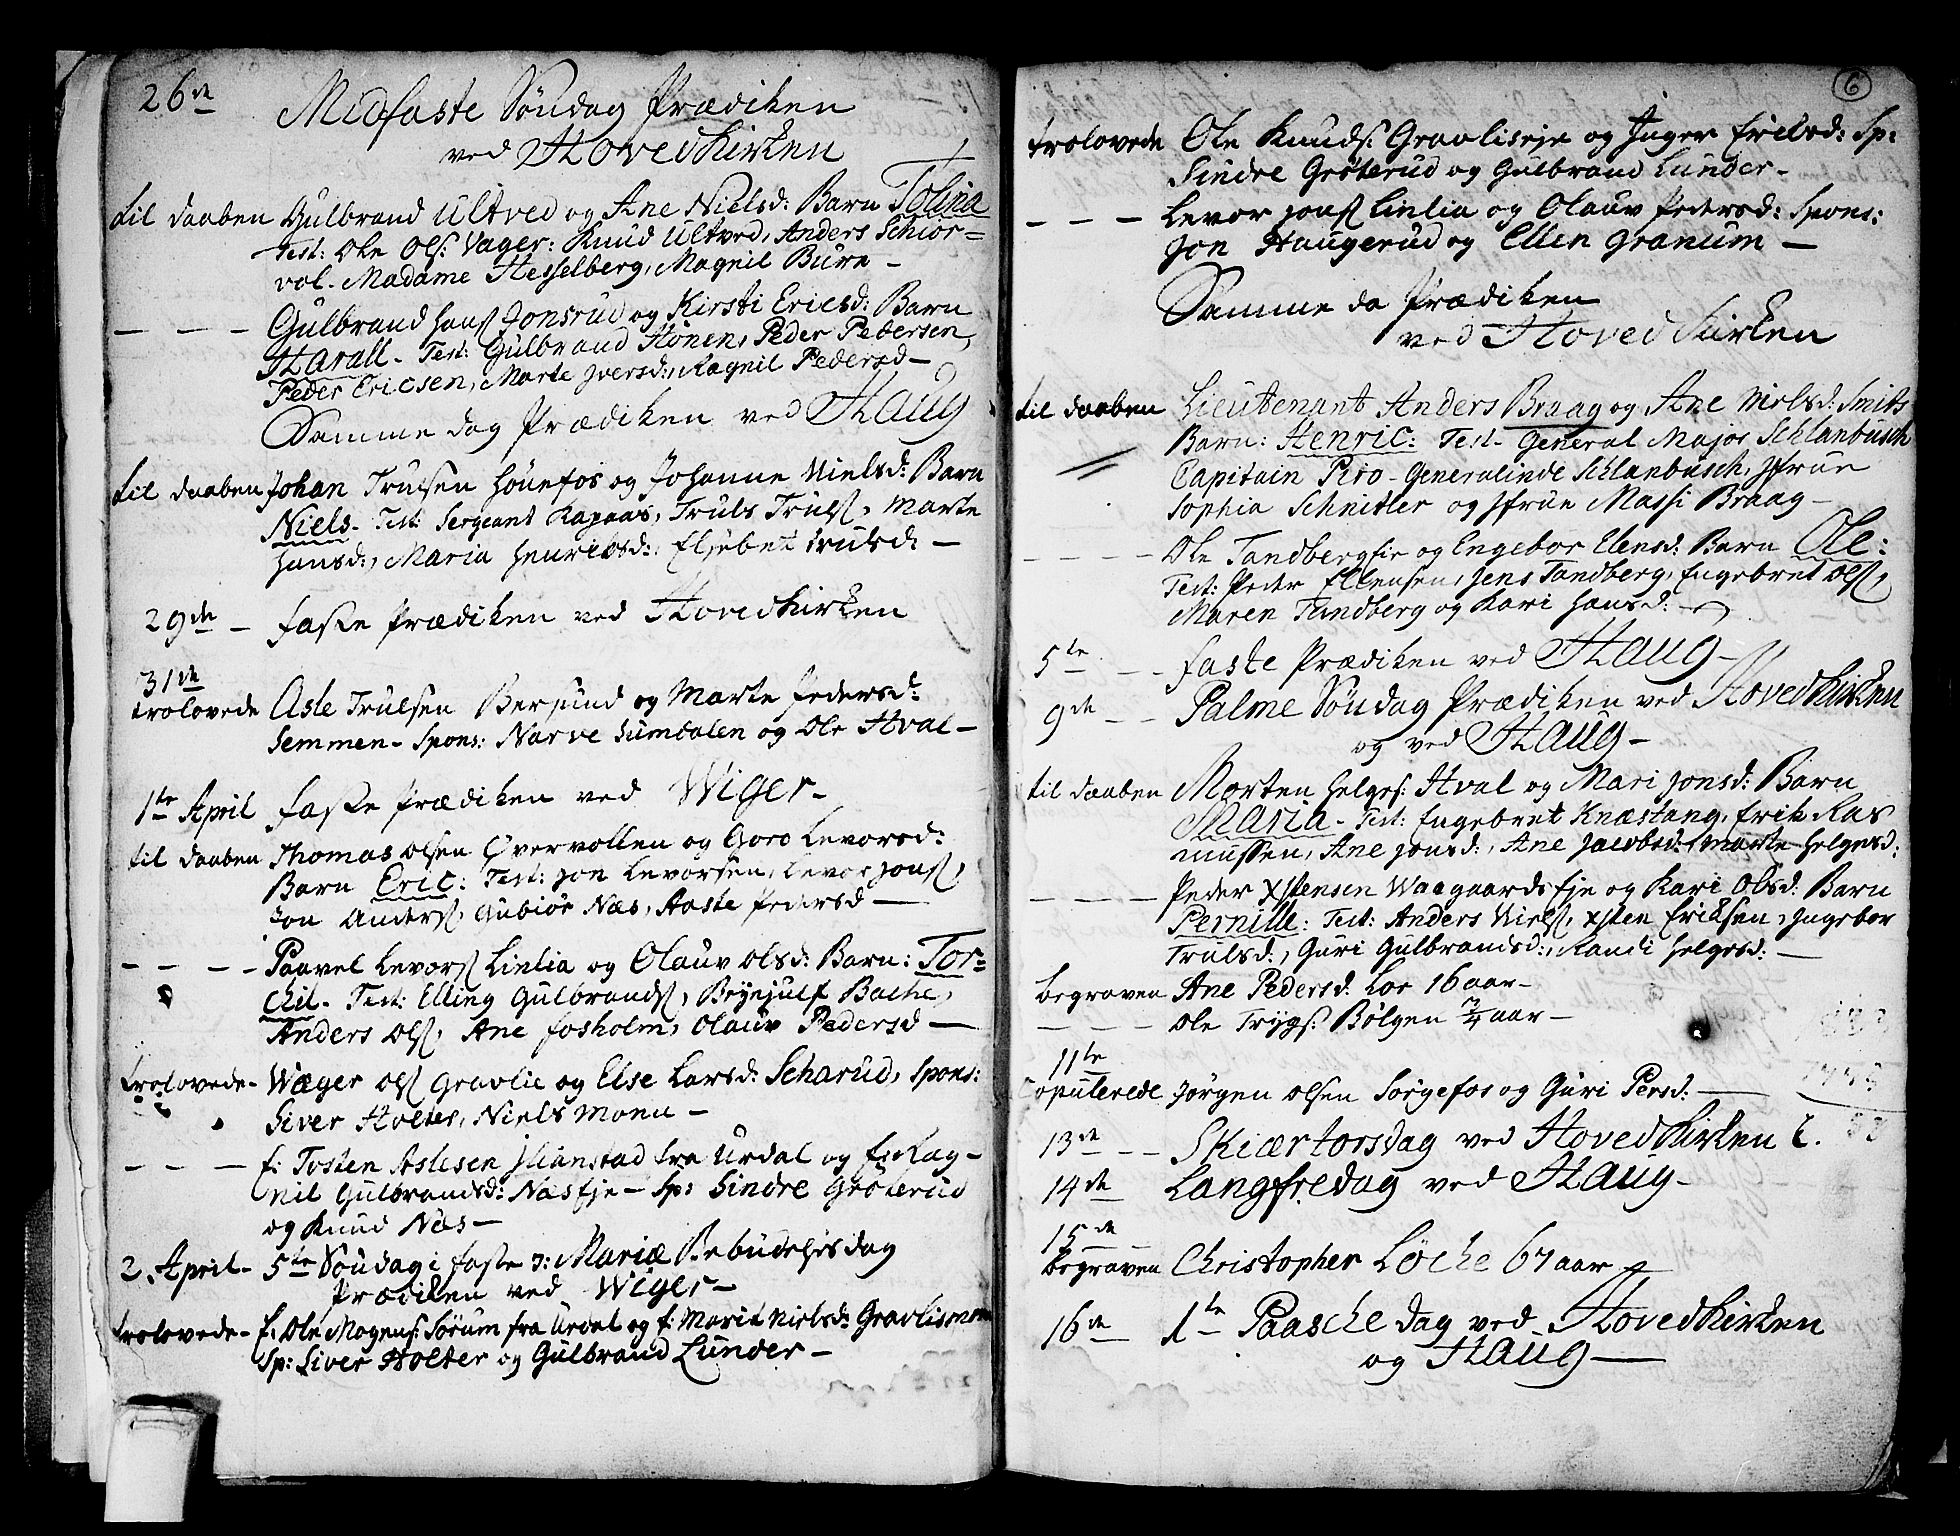 26de Midfaste Søndag Prædiken
ved Hovedkirken
til daaben Gulbrand Ultved og Ane Nielsd: Barn Tolina
Test: Ole Ols: Vager: Knud Ultved, Anders Schior=
vol. Madame Hesselberg, Magnil Bure -
- - - Gulbrand Hans Jonsrud og Kirsti Ericsd: Barn
Harall - Test: Gulbrand Hønen, Peder Pedersen,
Peder Ericsen, Marte Iversd:, Ragnil Pedersd -
Samme dag Prædiken ved Haug
til daaben Johan Trulsen Hønefos og Johanne Nielsd: Barn
Niels - Test: Sergeant Kapaas, Truls Truls, Marte
Hansd:, Maria Henricsd:, Elsebet Trulsd: -
29de - Faste Prædiken ved Hovedkirken
31de
trolovede Asle Trulsen Bersund og Marte Pedersd:
Semmen - Spons: Narve Sumdalen og Ole Hval -
1te April Faste Prædiken ved Wiger -
til daaben Thomas Olsen Øvervollen og Goro Levorsd:
Barn Eric: Test: Jon Levorsen, Levor Jons,
Jon Anders, Gubiør Næs, Aaste Pedersd -
- - - Paavel Levors Linlia og Olauv Olsd: Barn: Tor=
chil - Test: Elling Gulbrands, Brynjulf Bache,
Anders Ols, Ane Fosholm, Olauv Pedersd -
trolovede - Wæger Ols Gravlie og Else Larsd: Scharud, Spons:
Siver Holter, Niels Moen -
- - - f: Tosten Aslesen Jllanstad fra Urdal og f: Rag=
nil Gulbrandsd: Næs Eje - Sp: Sindre Grøterud
og Knud Næs -
2. April - 5te Søndag i Faste ɔ: Mariæ Bebudelses dag
Prædiken ved Wiger -
trolovede - f: Ole Mogens: Sørum fra Urdal og f: Marit Nielsd: Gravlismoen
Sp: Siver Holter og Gulbrand Lunder -
6
trolovede Ole Knuds: Gravliseje og Inger Erichsd: Sp:
Sindre Grøterud og Gulbrand Lunder -
- - - Levor Jons Linlia og Olauv Pedersd: Spons:
Jon Haugerud og Ellen Granum -
Samme da Prædiken
ved Hoved Kirken
til daaben Lieutenant Anders Braag og Ane Nielsd: Smits
Barn: Henric: Test - General Major Schlanbusch
Capitain Piro - Generalinde Schlanbusch, Jfrue
Sophia Schnitler og Jfrue Massi Braag -
- - - - Ole Tandbergeie og Engebor Elensd: Barn Ole:
Test: Peder Ellensen, Jens Tandberg, Engebret Ols,
Maren Tandberg og Kari Hansd: -
5te - - Faste Prædiken ved Haug -
9de - - Palme Søndag Prædiken ved Hovedkirken
og ved Haug -
til daaben Morten Helges: Hval og Mari Jonsd: Barn
Maria - Test: Engebret Knæstang, Erik Ras
mussen, Ane Jonsd:, Ane Jacobsd:, Marte Helgesd:
- - - Peder Xstensen Waagaards Eje og Kari Olsd: Barn
Pernille: Test: Anders Niels, Xsten Eriksen, Ingebor
Trulsd:, Guri Gulbrandsd:, Randi Helgesd: -
begraven Ane Pedersd: Loe 16 aar -
- - - Ole Trygs: Bølgen 3/4 aar -
11te
Copulerede Jørgen Olsen Sørgefos og Guri Persd: -
13de - - Skiærtorsdag ved Hovedkirken
14de Langfredag ved Haug -
15de
begraven Christopher Løche 67 aar -
16de 1te Paasche dag ved Hovedkirken
og Haug -